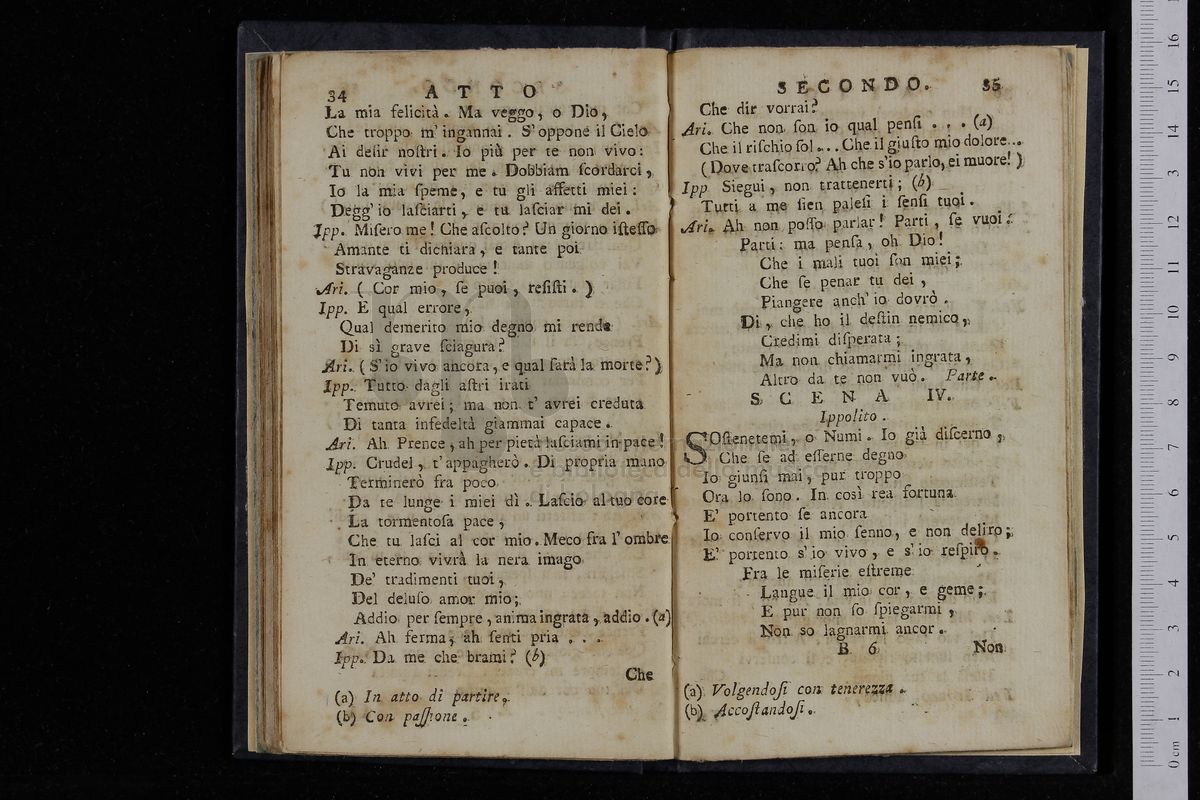 34 ATTO
La mia felicità. Ma veggo, o Dio,
Che troppo m' ingannai. S' oppone il Cielo
Ai deſir noſtri. Io più per te non vivo:
Tu non vivi per me. Dobbiam ſcordarci,
Io la mia ſpeme, e tu gli affetti miei:
Degg' io laſciarti, e tu laſciar mi dei.
Ipp. Miſero me! Che aſcolto? Un giorno iſteſſo
Amante ti dichiara, e tante poi
Stravaganze produce!
Ari. (Cor mio, ſe puoi, reſiſti.)
Ipp. E qual errore,
Qual demerito mio degno mi rende
Di sì grave ſciagura?
Ari. (S' io vivo ancora, e qual ſarà la morte?)
Ipp. Tutto dagli aſtri irati
Temuto avrei; ma non t' avrei creduta
Di tanta infedeltà giammai capace.
Ari. Ah Prence, ah per pietà laſciami in pace!
Ipp. Crudel, t' appagherò. Di propria mano
Terminerò fra poco
Da te lunge i miei dì. Laſcio al tuo core
La tormentoſa pace,
Che tu laſci al cor mio. Meco fra l' ombre
In eterno vivrà la nera imago
De' tradimenti tuoi,
Del deluſo amor mio;
Addio per ſempre, anima ingrata, addio. (a)
Ari. Ah ferma, ah ſenti pria . . .
Ipp. Da me che brami? (b)
Che
(a) In atto di partire.
(b) Con paſſione.
SECONDO. 35
Che dir vorrai?
Ari. Che non ſon io qual penſi . . . (a)
Che il riſchio ſol... Che il giuſto mio dolore...
(Dove traſcorro? Ah che s' io parlo, ei muore!)
Ipp Siegui, non trattenerti; (b)
Tutti a me ſien paleſi i ſenſi tuoi.
Ari. Ah non poſſo parlar! Parti, ſe vuoi:
Parti: ma penſa, oh Dio!
Che i mali tuoi ſon miei;
Che ſe penar tu dei,
Piangere anch' io dovrò.
Di, che ho il deſtin nemico,
Credimi diſperata;
Ma non chiamarmi ingrata,
Altro da te non vuò. Parte.
SCENA IV.
Ippolito.
SOſtenetemi, o Numi. Io già diſcerno,
Che ſe ad eſſerne degno
Io giunſi mai, pur troppo
Ora lo ſono. In così rea fortuna
E' portento ſe ancora
Io conſervo il mio ſenno, e non deliro;
E' portento s' io vivo, e s' io reſpiro.
Fra le miſerie eſtreme
Langue il mio cor, e geme;
E pur non ſo ſpiegarmi,
Non so lagnarmi ancor.
B 6 Non
(a) Volgendoſi con tenerezza.
(b) Accoſtandoſi.
0 cm 1 2 3 4 5 6 7 8 9 10 11 12 13 14 15 16